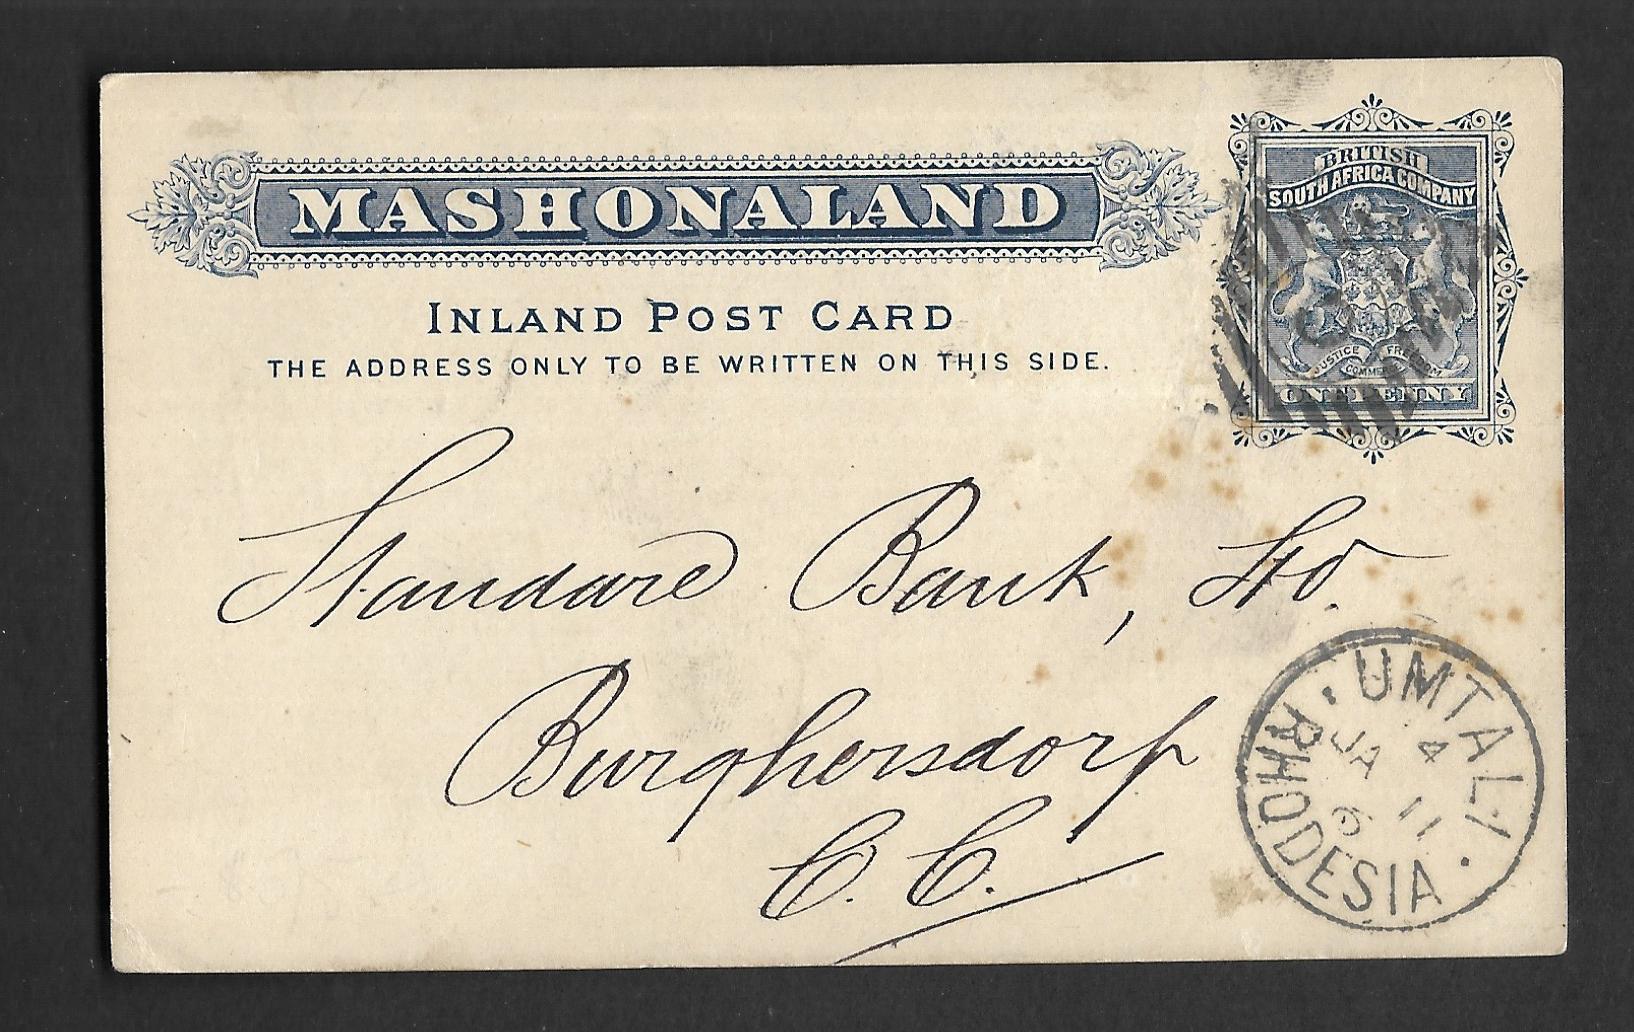 MASHONALAND
INLAND POST CARD
THE ADDRESS ONLY TO BE WRITTEN ON THIS SIDE.
BRITISH
SOUTH AFRICA COMPANY
JUSTICE FREEDOM
COMMERCE
ONE PENNY
Standard Bank, Ltd.
Burghersdorp
C.C.
UMTALI
4 11
JA 6
RHODESIA